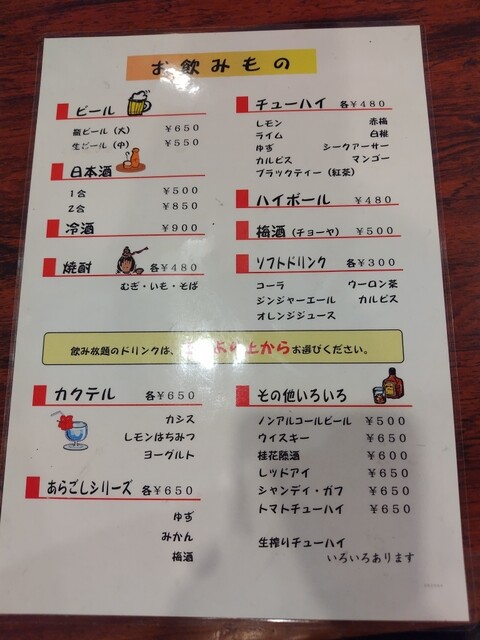 お飲みもの
ビール
瓶ビール（大） ￥650
生ビール（中） ￥550
日本酒
1合 ￥500
2合 ￥850
冷酒 ￥900
焼酎 各￥480
むぎ・いも・そば
チューハイ 各￥480
レモン 赤梅
ライム 白桃
ゆず シークァーサー
カルピス マンゴー
ブラックティー（紅茶）
ハイボール ￥480
梅酒（チョーヤ） ￥500
ソフトドリンク 各￥300
コーラ ウーロン茶
ジンジャーエール カルピス
オレンジジュース
飲み放題のドリンクは、より上からお選びください。
カクテル 各￥650
カシス
レモンはちみつ
ヨーグルト
あらごしシリーズ 各￥650
ゆず
みかん
梅酒
その他いろいろ
ノンアルコールビール ￥500
ウイスキー ￥650
桂花陳酒 ￥600
レッドアイ ￥650
シャンディ・ガフ ￥650
トマトチューハイ ￥650
生搾りチューハイ
いろいろあります